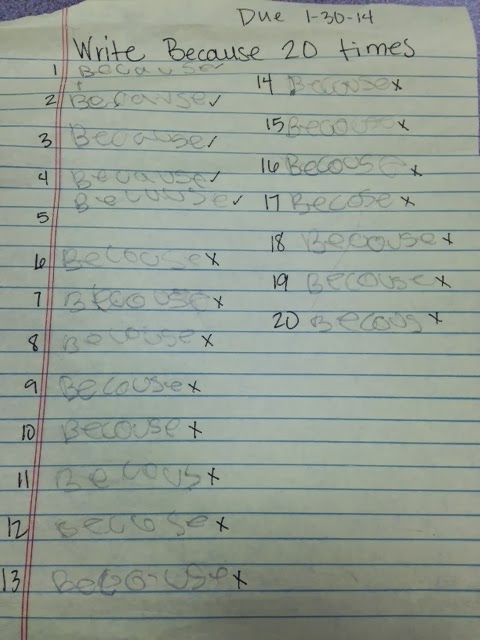 Due 1-30-14
Write Because 20 times
1 Because ✓
2 Because ✓
3 Because ✓
4 Because ✓
5 Because ✓
6 Becouse x
7 Becouse x
8 Becouse x
9 Becouse x
10 Becouse x
11 Becous x
12 Becose x
13 Becouse x
14 Becouse x
15 Becouse x
16 Becouse x
17 Becose x
18 Becouse x
19 Becouse x
20 Becous x